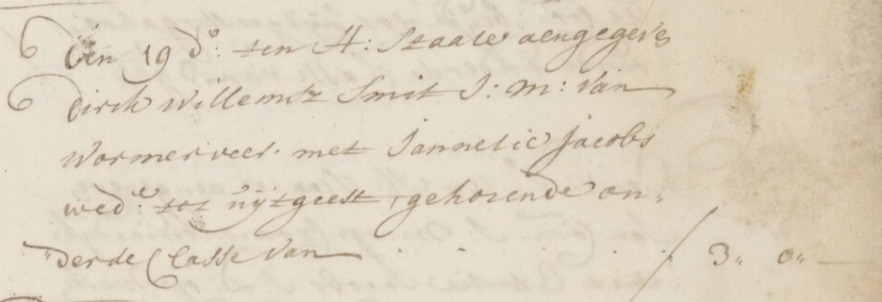 Den 19 do: ten H: Staate aengegeve
Dirck Willemsz Smit J: m: van
Wormerveer. met Jannetie Jacobs
wede: tot uijtgeest, gehorende on„
„der de Classe van . . . . . / 3„ 0„ —